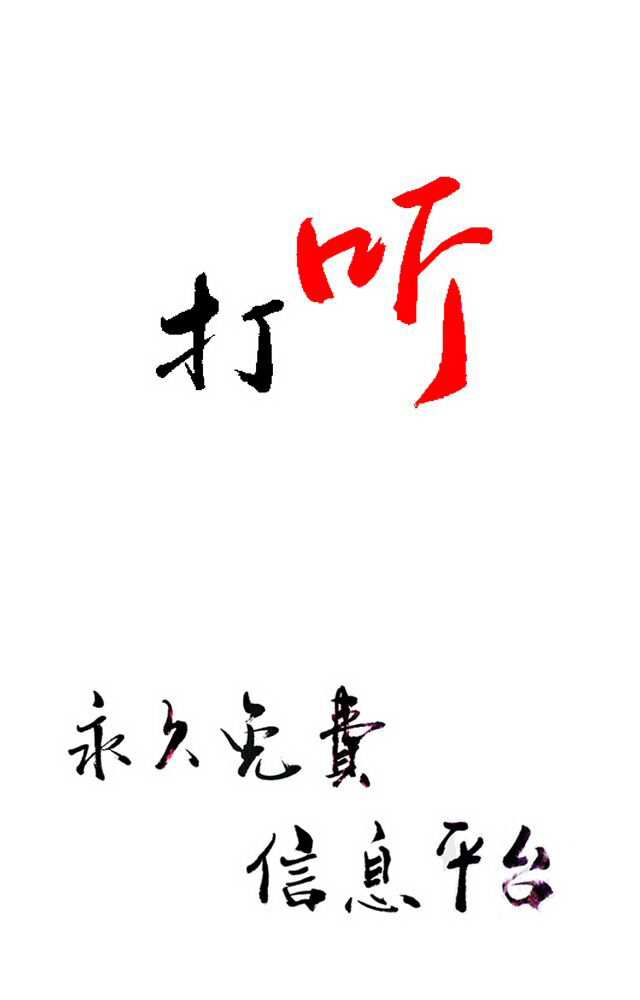 打听
永久免費
信息平台